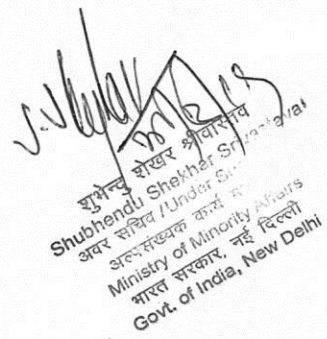 शुभेन्दु शेखर श्रीवास्तव
Shubhendu Shekhar
अवर सचिव /Under
अल्पसंख्यक कार्य
Ministry of Minority Affairs
भारत सरकार, नई दिल्ली
Govt. of India, New Delhi